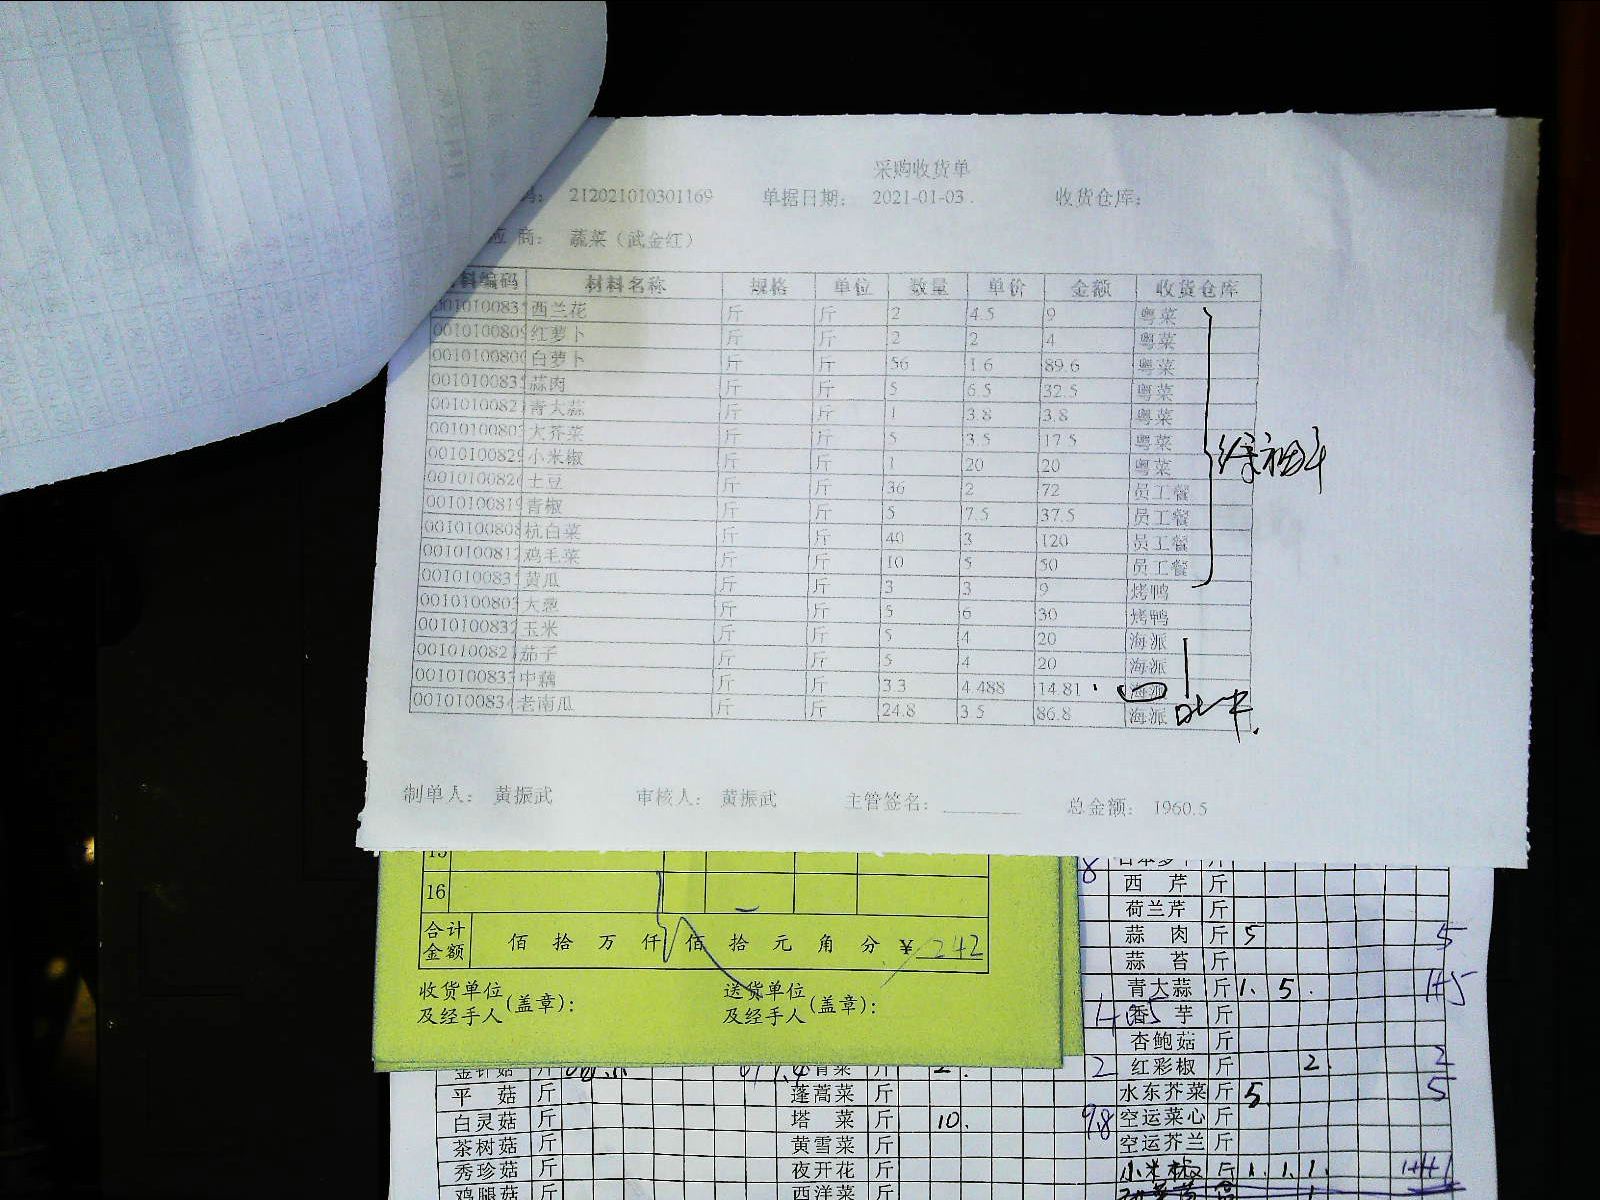 采购收货单
码： 212021010301169 单据日期： 2021-01-03 收货仓库：
应 商： 蔬菜（武金红）
料编码 材料名称 规格 单位 数量 单价 金额 收货仓库
001010083 西兰花 斤 斤 2 4.5 9 粤菜
001010080 红萝卜 斤 斤 2 2 4 粤菜
001010080 白萝卜 斤 斤 56 1.6 89.6 粤菜
001010083 蒜肉 斤 斤 5 6.5 32.5 粤菜
001010082 青大蒜 斤 斤 1 3.8 3.8 粤菜
001010080 大芥菜 斤 斤 5 3.5 17.5 粤菜
001010082 小米椒 斤 斤 1 20 20 粤菜
001010082 土豆 斤 斤 36 2 72 员工餐
001010081 青椒 斤 斤 5 7.5 37.5 员工餐
001010080 杭白菜 斤 斤 40 3 120 员工餐
001010081 鸡毛菜 斤 斤 10 5 50 员工餐
001010083 黄瓜 斤 斤 3 3 9 烤鸭
001010080 大葱 斤 斤 5 6 30 烤鸭
001010083 玉米 斤 斤 5 4 20 海派
001010082 茄子 斤 斤 5 4 20 海派
001010083 中藕 斤 斤 3.3 4.488 14.81 海派
001010083 老南瓜 斤 斤 24.8 3.5 86.8 海派
制单人： 黄振武 审核人： 黄振武 主管签名： 总金额： 1960.5
16
合计金额 佰 拾 万 仟 佰 拾 元 角 分 ¥ 242
收货单位及经手人(盖章)： 送货单位及经手人(盖章)：
8
西 芹 斤
荷兰芹 斤
蒜 肉 斤 5 5
蒜 苔 斤
青大蒜 斤 1. 5. 1+5
香 芋 斤
杏鲍菇 斤
2 红彩椒 斤 2. 2
水东芥菜 斤 5 5
9.8 空运菜心 斤
空运芥兰 斤
小米椒 斤 1. 1. 1. 1+1+1
金针菇 斤
平 菇 斤 蓬蒿菜 斤
白灵菇 斤 塔 菜 斤 10.
茶树菇 斤 黄雪菜 斤
秀珍菇 斤 夜开花 斤
鸡腿菇 斤 西洋菜 斤